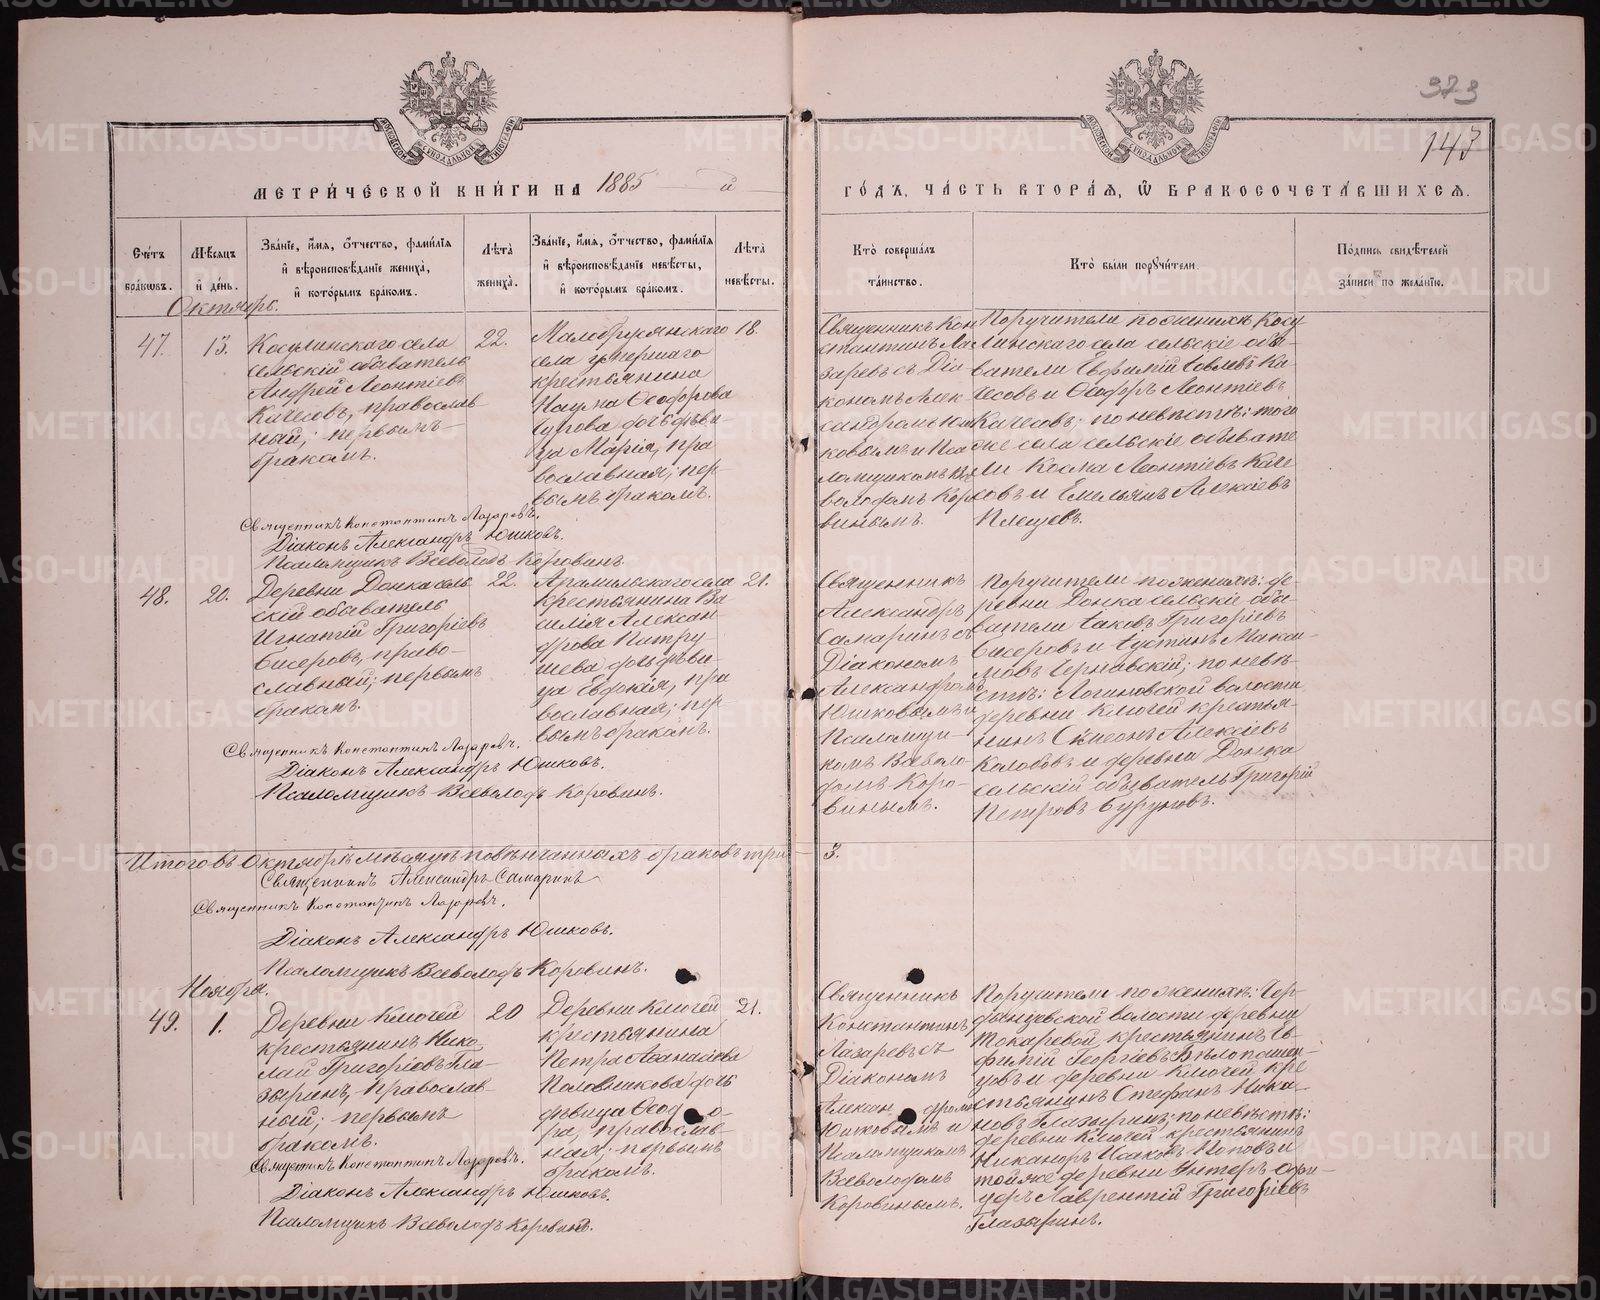 373
143
МЕТРИЧЕСКОЙ КНИГИ НА 1885 й
ГОДЪ, ЧАСТЬ ВТОРАЯ, Ѡ БРАКОСОЧЕТАВШИХСЯ.
Счетъ браковъ.
Мѣсяцъ и день.
Званіе, имя, отчество, фамилія и вѣроисповѣданіе жениха, и которымъ бракомъ.
Лѣта жениха.
Званіе, имя, отчество, фамилія и вѣроисповѣданіе невѣсты, и которымъ бракомъ.
Лѣта невѣсты.
Кто совершалъ таинство.
Кто были поручители.
Подпись свидѣтелей записи по желанію.
Октябрь.
47.
13.
Косулинскаго села
сельскій обыватель
Андрей Леонтіевъ
Качесовъ, православ
ный; первымъ
бракомъ.
22.
Малобрусянскаго
села умершаго
крестьянина
Наума Ѳеодорова
Бурова дочь дѣви
ца Марія, пра
вославная; пер
вымъ бракомъ.
18.
Священникъ Кон
стантинъ Ла
заревъ съ Діа
кономъ Алек
сандромъ Юш
ковымъ и Пса
ломщикомъ Все
володомъ Коро
винымъ.
Поручители по женихѣ Косу
линскаго села сельскіе обы
ватели Евфимій Іовлевъ Ка
чесовъ и Ѳеодоръ Леонтіевъ
Качесовъ; по невѣстѣ: того
же села сельскіе обывате
ли Косма Леонтіевъ Каче
совъ и Емельянъ Алексіевъ
Плещевъ.
Священникъ Константинъ Лазаревъ.
Діаконъ Александръ Юшковъ.
Псаломщикъ Всеволодъ Коровинъ.
48.
20.
Деревни Донка сель
скій обыватель
Игнатій Григоріевъ
Бисеровъ, право-
славный; первымъ
бракомъ.
22.
Арамильскаго села
крестьянина Ва
силія Алексан
дрова Патру
шева дочь дѣви
ца Евдокія, пра
вославная; пер
вымъ бракомъ.
21.
Священникъ
Александръ
Самаринъ съ
Діакономъ
Александромъ
Юшковымъ и
Псаломщи-
комъ Всеволо
домъ Коро-
винымъ.
Поручители по женихѣ: де
ревни Донка сельскіе обы-
ватели Іаковъ Григоріевъ
Бисеровъ и Іустинъ Макси-
мовъ Чернавскій; по невѣ-
стѣ: Логиновской волости
деревни Ключей крестья-
нинъ Симеонъ Алексіевъ
Колобовъ и деревни Донка
сельскій обыватель Григорій
Петровъ Буруховъ.
Священникъ Константинъ Лазаревъ.
Діаконъ Александръ Юшковъ.
Псаломщикъ Всеволодъ Коровинъ.
Итого въ Октябрѣ мѣсяцѣ повѣнчанныхъ браковъ три 3.
Священникъ Александръ Самаринъ
Священникъ Константинъ Лазаревъ.
Діаконъ Александръ Юшковъ.
Псаломщикъ Всеволодъ Коровинъ.
Ноябрь.
49.
1.
Деревни Ключей
крестьянинъ Нико
лай Григоріевъ Гла
зыринъ, православ
ный; первымъ
бракомъ.
20
Деревни Ключей
крестьянина
Петра Аѳанасіева
Половникова дочь
дѣвица Ѳеодо-
ра, православ-
ная; первымъ
бракомъ.
21.
Священникъ
Константинъ
Лазаревъ съ
Діакономъ
Александромъ
Юшковымъ и
Псаломщикомъ
Всеволодомъ
Коровинымъ.
Поручители по женихѣ:
волости деревни
Токаревой крестьянинъ Ев-
фимій Георгіевъ Бѣлопашен-
цовъ и деревни Ключей кре
стьянинъ Стефанъ Ника-
новъ Глазыринъ; по невѣстѣ:
деревни Ключей крестьянинъ
Никаноръ Исаковъ Поповъ и
той же деревни Унтеръ-офи-
церъ Лаврентій Григоріевъ
Глазыринъ.
Священникъ Константинъ Лазаревъ.
Діаконъ Александръ Юшковъ.
Псаломщикъ Всеволодъ Коровинъ.
METRIKI.GASO-URAL.RU